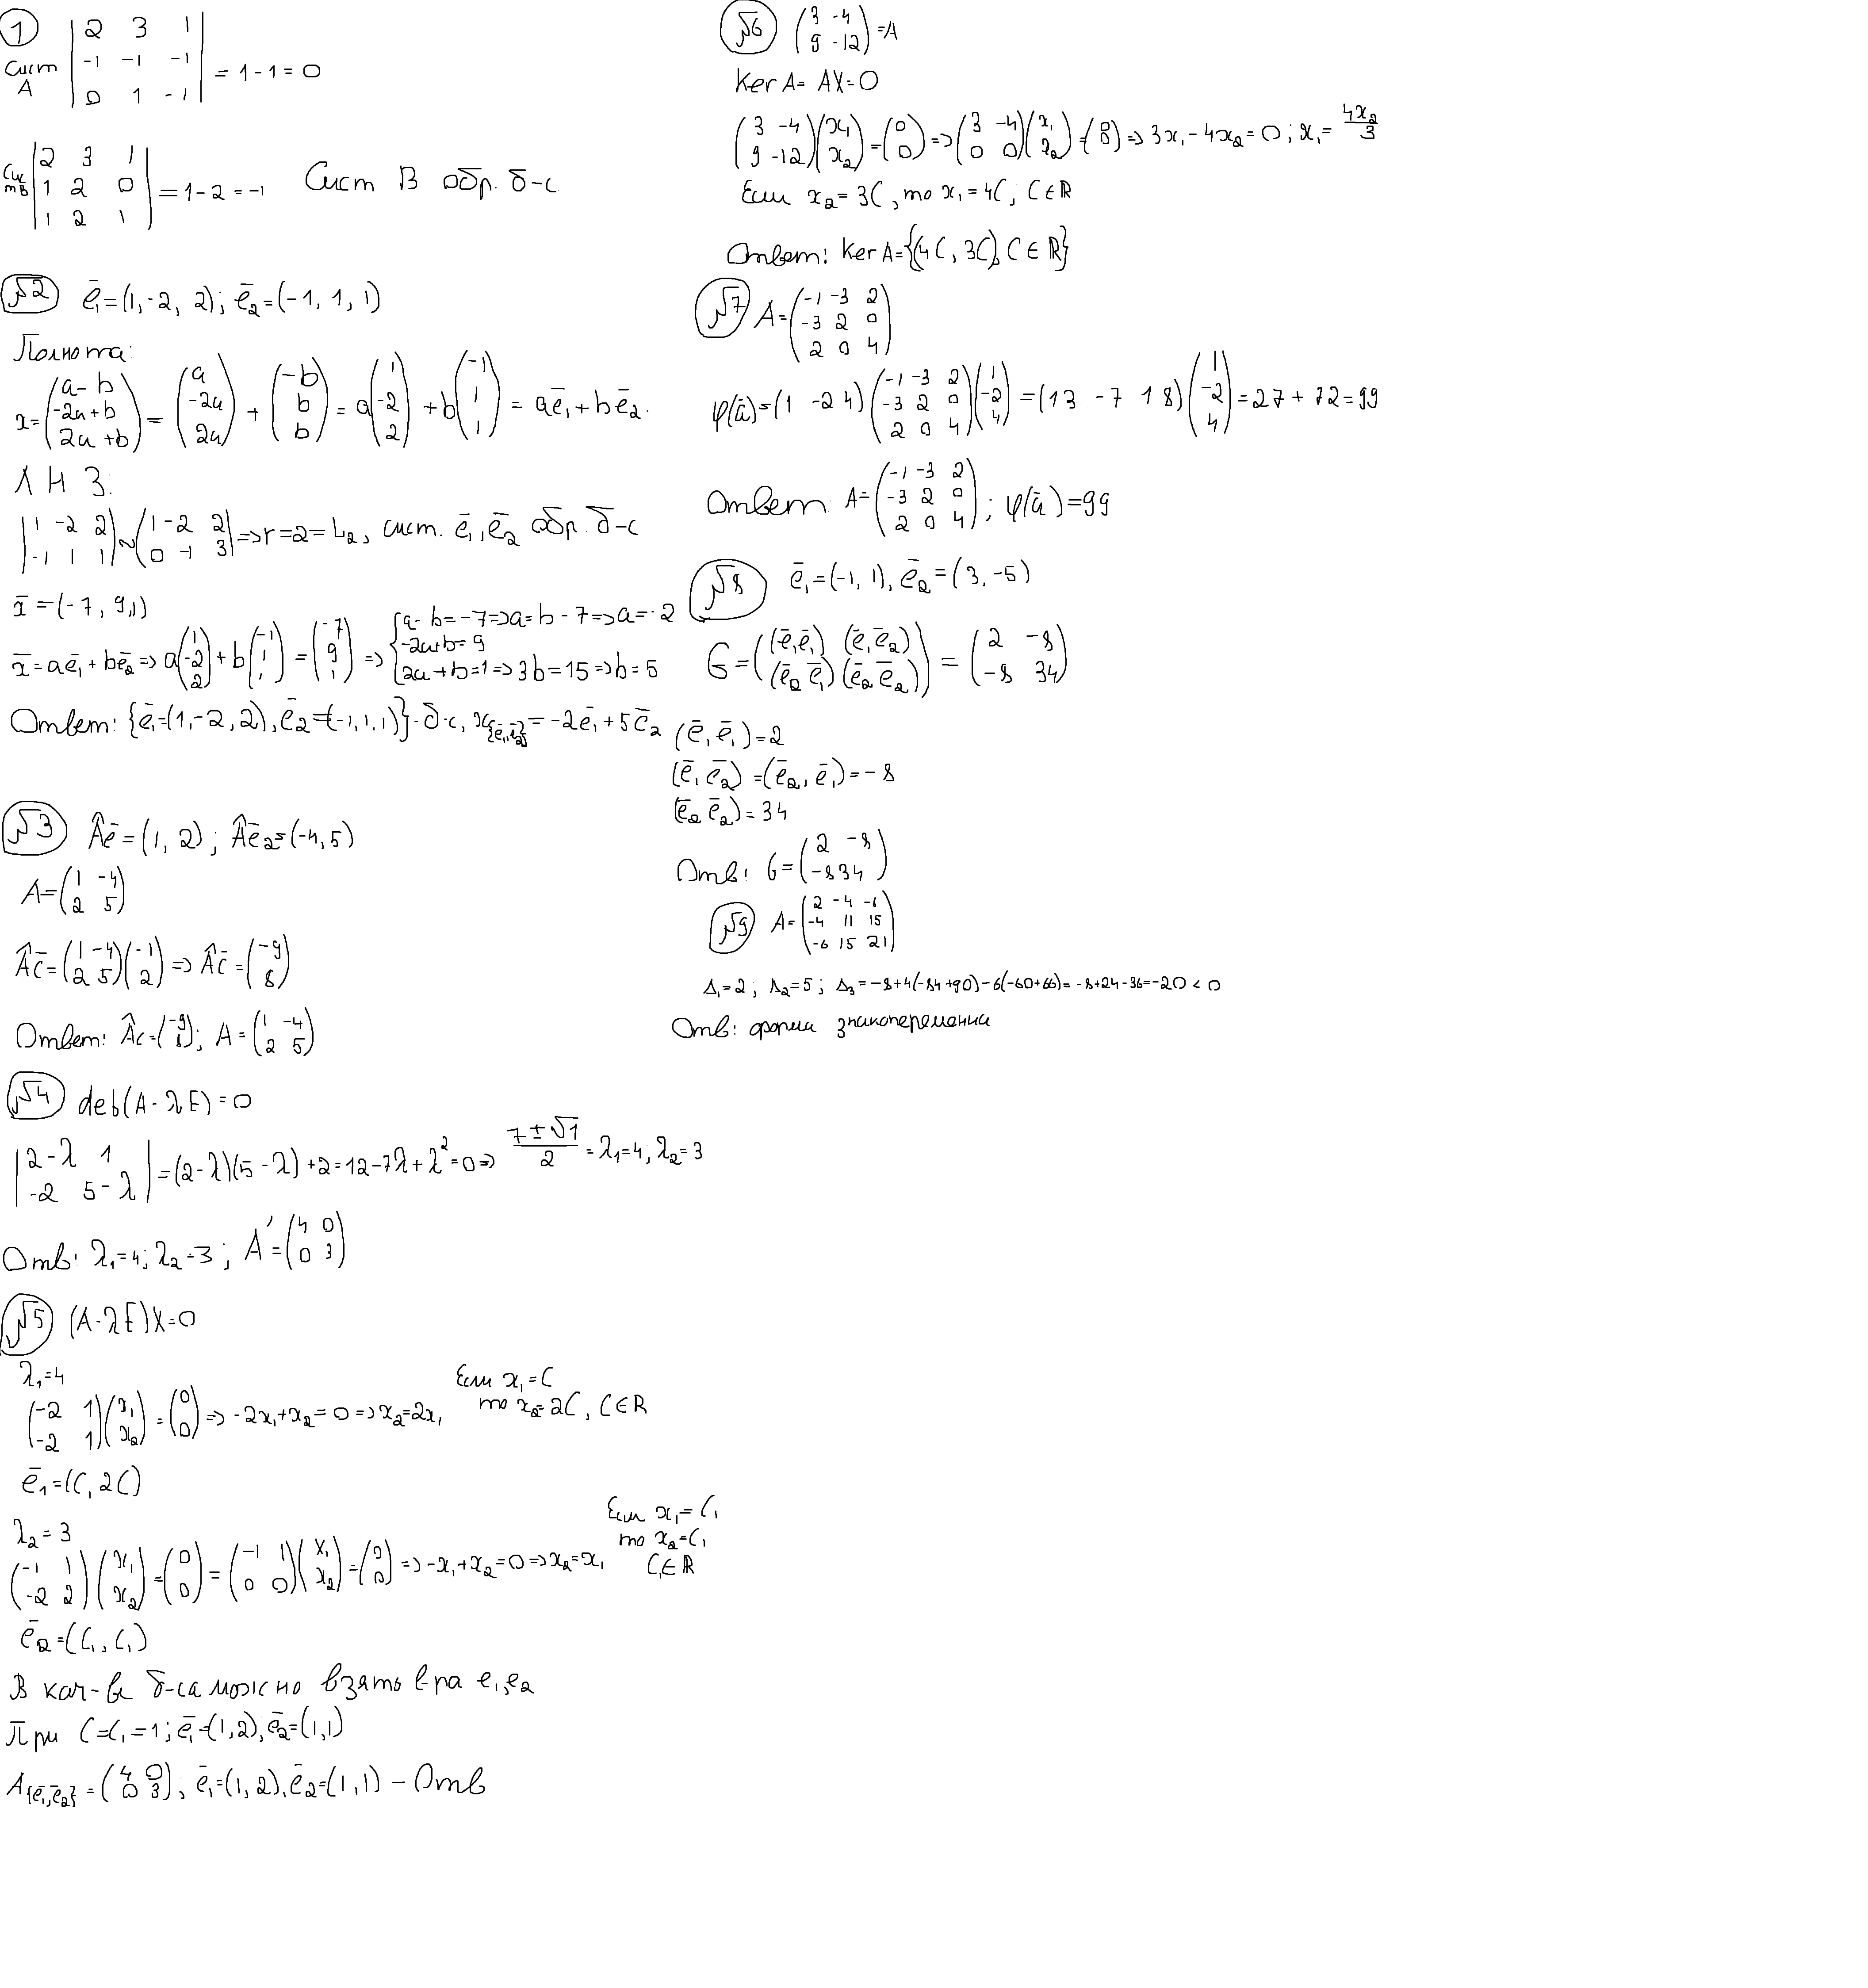 1
Сист A | 2 3 1 ; -1 -1 -1 ; 0 1 -1 | = 1 - 1 = 0
Сист B | 2 3 1 ; 1 2 0 ; 1 2 1 | = 1 - 2 = -1 Сист B обр. б-с
№2 ē₁=(1, -2, 2); ē₂=(-1, 1, 1)
Полнота:
x=(a-b ; -2a+b ; 2a+b) = (a ; -2a ; 2a) + (-b ; b ; b) = a(1 ; -2 ; 2) + b(-1 ; 1 ; 1) = aē₁+bē₂.
ЛНЗ:
|1 -2 2 ; -1 1 1| ~ (1 -2 2 ; 0 -1 3| => r=2=L₂, сист. ē₁,ē₂ обр. б-с
x̄=(-7, 9,1)
x̄=aē₁+bē₂ => a(1 ; -2 ; 2)+b(-1 ; 1 ; 1)=(-7 ; 9 ; 1) => {a-b=-7=>a=b-7=>a=-2 ; -2a+b=9 ; 2a+b=1=>3b=15=>b=5
Ответ: {ē₁=(1,-2,2), ē₂=(-1,1,1)}-б-с, x{ē₁,ē₂}=-2ē₁+5ē₂
№3 Âē=(1, 2); Âē₂=(-4,5)
A=(1 -4 ; 2 5)
Âc̄=(1 -4 ; 2 5)(-1 ; 2) => Âc̄=(-9 ; 8)
Ответ: Âc=(-9 ; 8); A=(1 -4 ; 2 5)
№4 det(A-λE)=0
|2-λ 1 ; -2 5-λ|=(2-λ)(5-λ)+2=12-7λ+λ²=0=> (7±√1)/2 = λ₁=4; λ₂=3
Отв: λ₁=4; λ₂=3; A'=(4 0 ; 0 3)
№5 (A-λE)X=0
λ₁=4
(-2 1 ; -2 1)(x₁ ; x₂)=(0 ; 0)=>-2x₁+x₂=0=>x₂=2x₁ Если x₁=C
то x₂=2C, C∈R
ē₁=(C, 2C)
λ₂=3
(-1 1 ; -2 2)(x₁ ; x₂)=(0 ; 0)=(-1 1 ; 0 0)(x₁ ; x₂)=(0 ; 0)=>-x₁+x₂=0=>x₂=x₁ Если x₁=C₁
то x₂=C₁
C₁∈R
ē₂=(C₁, C₁)
В кач-ве б-са можно взять в-ра e₁,e₂
При C=C₁=1; ē₁=(1,2), ē₂=(1,1)
A{ē₁,ē₂}=(4 0 ; 0 3); ē₁=(1,2), ē₂=(1,1) – Отв
№6 (3 -4 ; 9 -12)=A
Ker A= AX=0
(3 -4 ; 9 -12)(x₁ ; x₂)=(0 ; 0)=>(3 -4 ; 0 0)(x₁ ; x₂)=(0 ; 0)=>3x₁-4x₂=0; x₁=4x₂/3
Если x₂=3C, то x₁=4C, C∈R
Ответ: Ker A={(4C, 3C), C∈R}
№7 A=(-1 -3 2 ; -3 2 0 ; 2 0 4)
φ(ā)=(1 -2 4)(-1 -3 2 ; -3 2 0 ; 2 0 4)(1 ; -2 ; 4)=(13 -7 18)(1 ; -2 ; 4)=27+72=99
Ответ: A=(-1 -3 2 ; -3 2 0 ; 2 0 4); φ(ā)=99
№8 ē₁=(-1, 1), ē₂=(3,-5)
G=((ē₁ē₁) (ē₁ē₂) ; (ē₂ ē₁) (ē₂ ē₂))=(2 -8 ; -8 34)
(ē₁ ē₁)=2
(ē₁ ē₂)=(ē₂, ē₁)=-8
(ē₂ ē₂)=34
Отв: G=(2 -8 ; -8 34)
№9 A=(2 -4 -6 ; -4 11 15 ; -6 15 21)
Δ₁=2; Δ₂=5; Δ₃=-8+4(-84+90)-6(-60+66)=-8+24-36=-20<0
Отв: форма знакопеременна